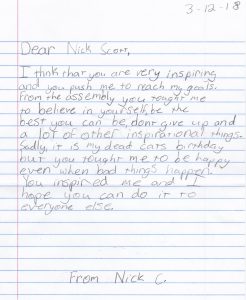 3-12-18
Dear Nick Scott,
I think that you are very inspiring
and you push me to reach my goals.
From the assembly, you tought me
to believe in yourself, be the
best you can be, dont give up and
a lot of other inspirational things.
Sadly, it is my dead cats birthday
but you tought me to be happy
even when bad things happen.
You inspired me and I
hope you can do it to
everyone else.
From Nick C.